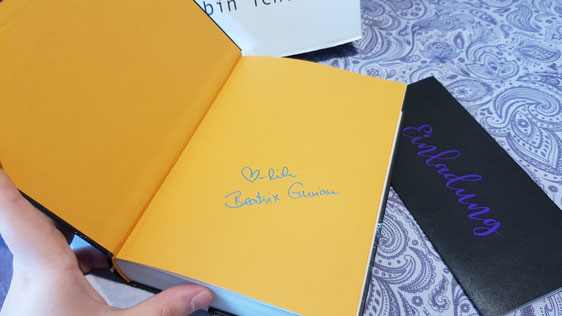 bin ich
♡-lich
Beatrix Gurian
Einladung